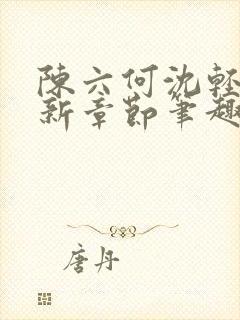 陳六何沈輕
新章節筆趣
唐丹